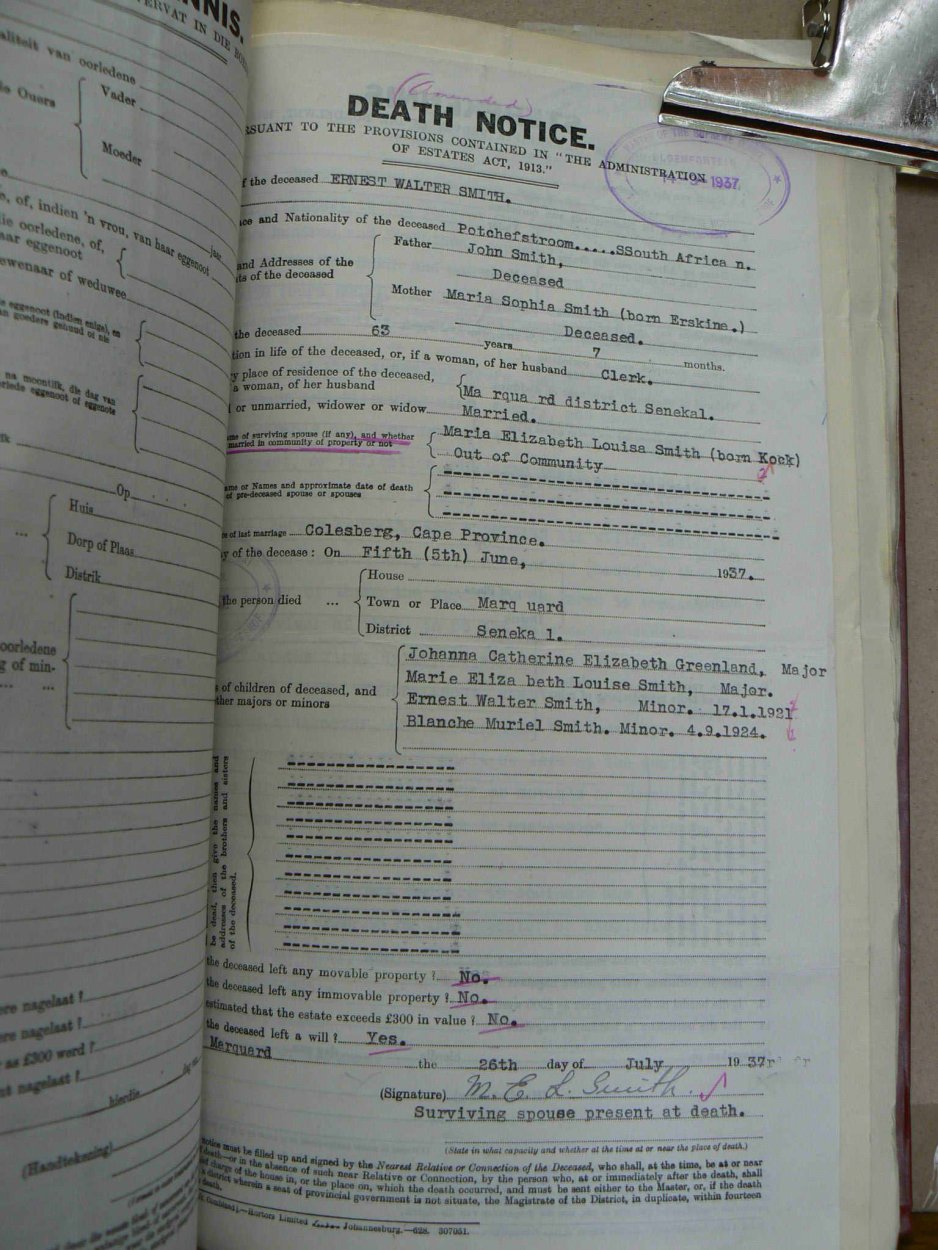 NNIS.
ERVAT IN DIE
aliteit van oorledene
Vader
e Ouers
Moeder
s, of, indien 'n vrou, van haar eggenoot
jaar
ie oorledene, of,
aar eggenoot
ewenaar of weduwee
e eggenoot (indien enige), en
an goedere getroud of nie
na moontlik, die dag van
erlede eggenoot of eggenote
Op
Huis
Dorp of Plaas
Distrik
oorledene
g of min-
ere nagelaat ?
ere nagelaat ?
as £300 werd ?
nt nagelaat ?
hierdie
(Handtekening)
(Amended)
DEATH NOTICE.
RSUANT TO THE PROVISIONS CONTAINED IN "THE ADMINISTRATION
OF ESTATES ACT, 1913."
1937
f the deceased ERNEST WALTER SMITH.
ce and Nationality of the deceased Potchefstroom.....SSouth Africa n.
and Addresses of the
ts of the deceased
Father John Smith,
Deceased
Mother Maria Sophia Smith (born Erskine.)
Deceased.
the deceased 63 years 7 months.
tion in life of the deceased, or, if a woman, of her husband Clerk.
y place of residence of the deceased,
a woman, of her husband
Ma rqua rd district Senekal.
l or unmarried, widower or widow Married.
me of surviving spouse (if any), and whether
married in community of property or not
Maria Elizabeth Louisa Smith (born Kock)
Out of Community
ame or Names and approximate date of death
of pre-deceased spouse or spouses
e of last marriage Colesberg, Cape Province.
y of the decease : On Fifth (5th) June, 1937.
the person died ...
House
Town or Place Marq uard
District Seneka l.
s of children of deceased, and
ther majors or minors
Johanna Catherine Elizabeth Greenland, Major
Marie Eliza beth Louise Smith, Major.
Ernest Walter Smith, Minor. 17.1.1921
Blanche Muriel Smith. Minor. 4.9.1924.
be dead, then give the names and
addresses of the brothers and sisters
of the deceased.
the deceased left any movable property ? No.
the deceased left any immovable property ? No.
estimated that the estate exceeds £300 in value ? No.
the deceased left a will ? Yes.
Marquard the 26th day of July 1937
(Signature) M. E. L. Smith.
Surviving spouse present at death.
(State in what capacity and whether at the time at or near the place of death.)
notice must be filled up and signed by the Nearest Relative or Connection of the Deceased, who shall, at the time, be at or near
death—or in the absence of such near Relative or Connection, by the person who, at or immediately after the death, shall
charge of the house in, or the place on, which the death occurred, and must be sent either to the Master, or, if the death
a district wherein a seat of provincial government is not situate, the Magistrate of the District, in duplicate, within fourteen
death.
Hortors Limited Johannesburg.—628. 307051.